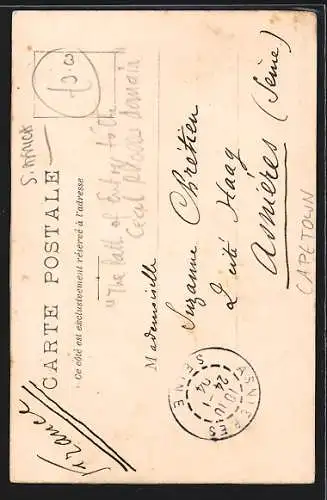 France
CARTE POSTALE
Ce côté est exclusivement réservé à l'adresse
S. AFRICA
"The path of Entry to the
Cecil Rhodes domain"
Mademoiselle
Suzanne Chrétien
2 cité Haag
Asnières (Seine)
CAPETOWN
ASNIERES
24
SEINE